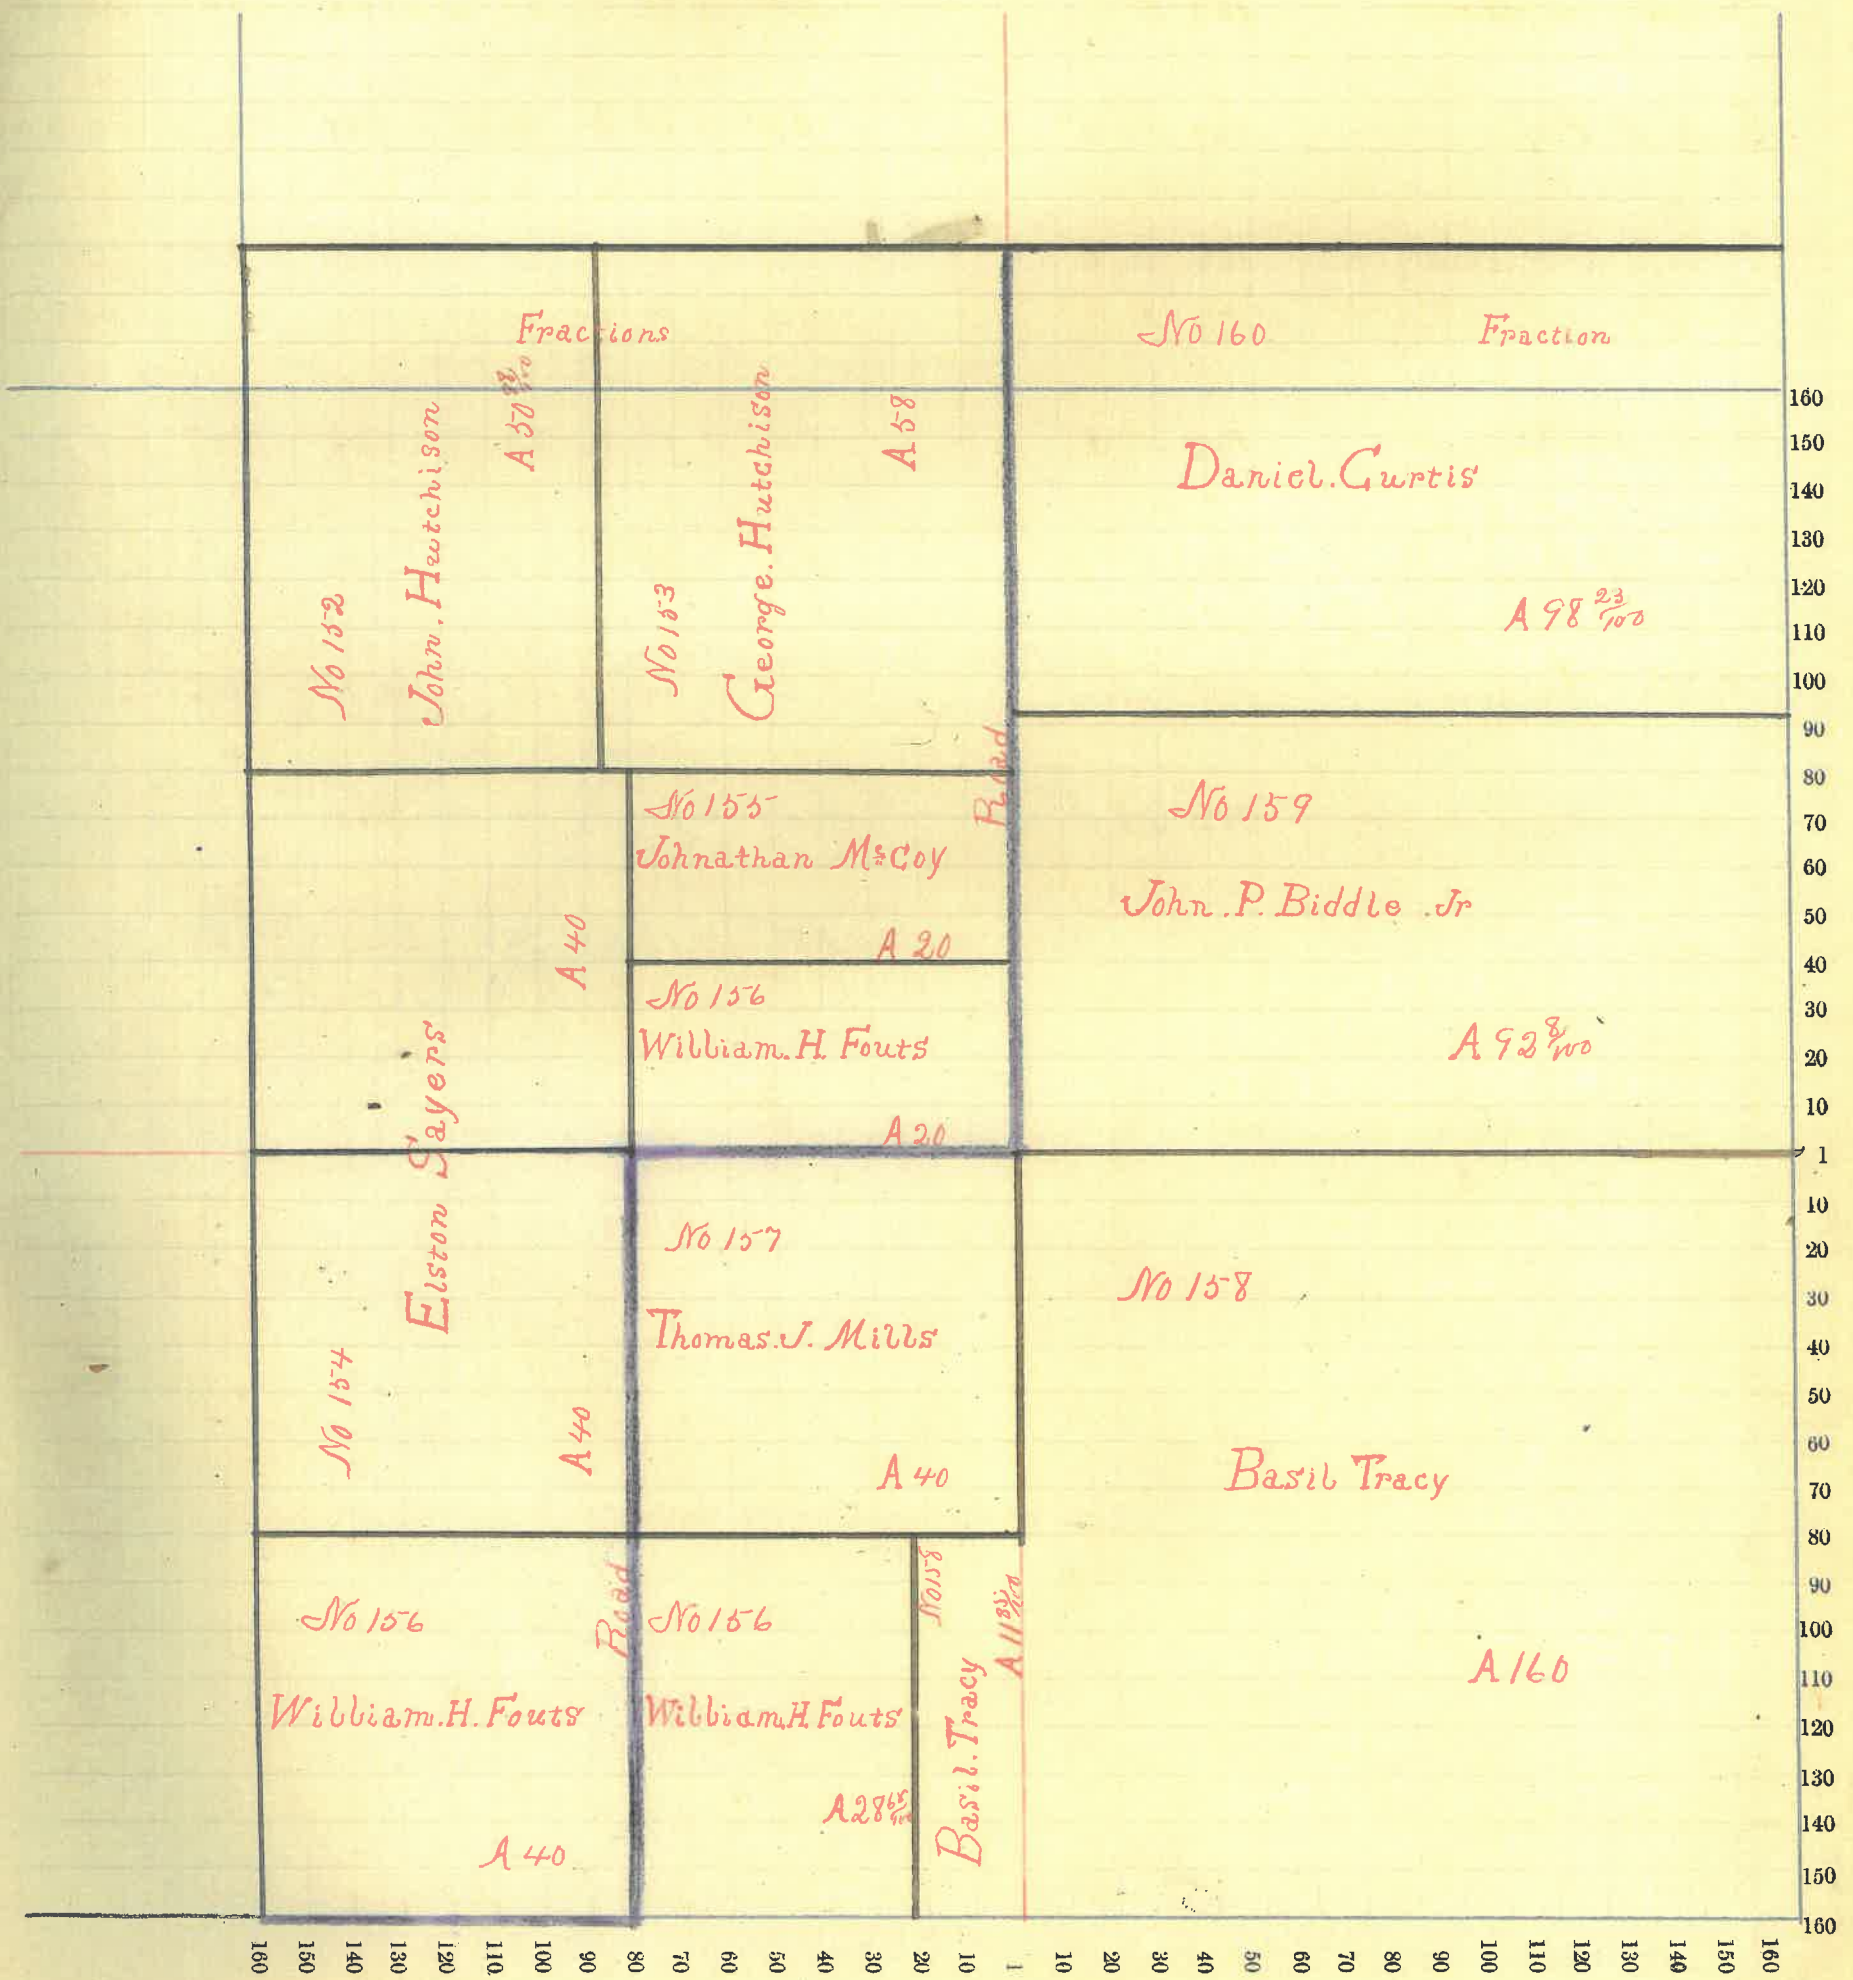 Fractions
No 152
John. Hutchison
A 50 88/100
No 153
George. Hutchison
A 58
No 160 Fraction
Daniel. Curtis
A 98 23/100
Road
No 155
Johnathan McCoy
A 20
No 156
William. H. Fouts
A 20
No 159
John. P. Biddle. Jr
A 92 8/100
No 154
Elston Sayers
A 40
A 40
No 157
Thomas. J. Mills
A 40
No 158
Basil Tracy
A 160
Road
No 156
William. H. Fouts
A 40
No 156
William. H. Fouts
A 28 65/100
No 158
Basil. Tracy
A 11 35/100
160
150
140
130
120
110
100
90
80
70
60
50
40
30
20
10
1
10
20
30
40
50
60
70
80
90
100
110
120
130
140
150
160
160 150 140 130 120 110 100 90 80 70 60 50 40 30 20 10 1 10 20 30 40 50 60 70 80 90 100 110 120 130 150 160